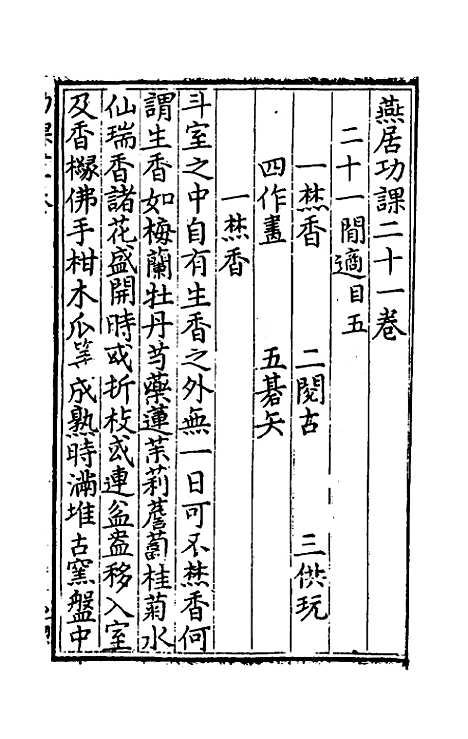 燕居功課二十一卷
二十一閒適目五
一焚香 二閱古 三供玩
四作畫 五碁矢
一焚香
斗室之中自有生香之外無一日可不焚香何
謂生香如梅蘭牡丹芍藥蓮茉莉薝蔔桂菊水
仙瑞香諸花盛開時或折枝或連盆盎移入室
及香櫞佛手柑木瓜等成熟時滿堆古窯盤中